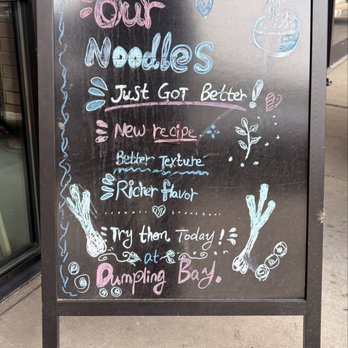 Our
Noodles
Just Got Better!
New recipe.
Better Texture
Richer flavor
Try them Today!
at
Dumpling Bay.